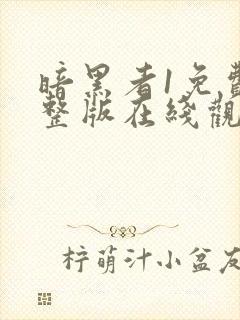 暗黑者1免費
整版在綫觀
柠萌汁小盆友